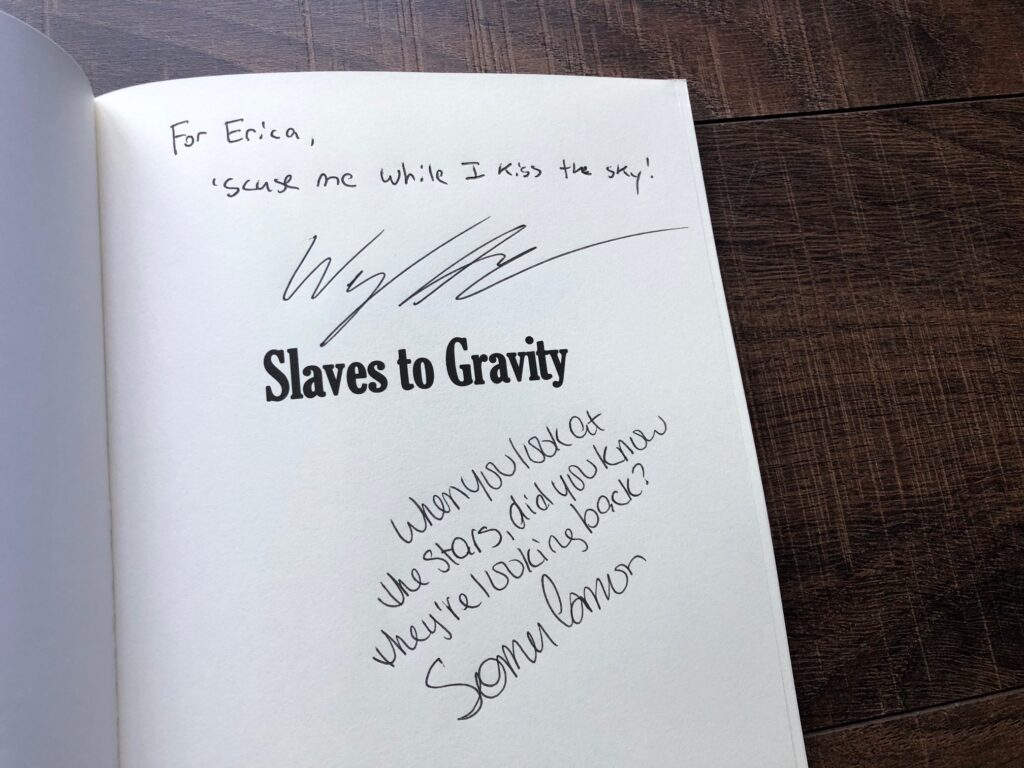 For Erica,
'scuse me while I kiss the sky!
Slaves to Gravity
When you look at
the stars, did you know
they're looking back?
Somer Canon